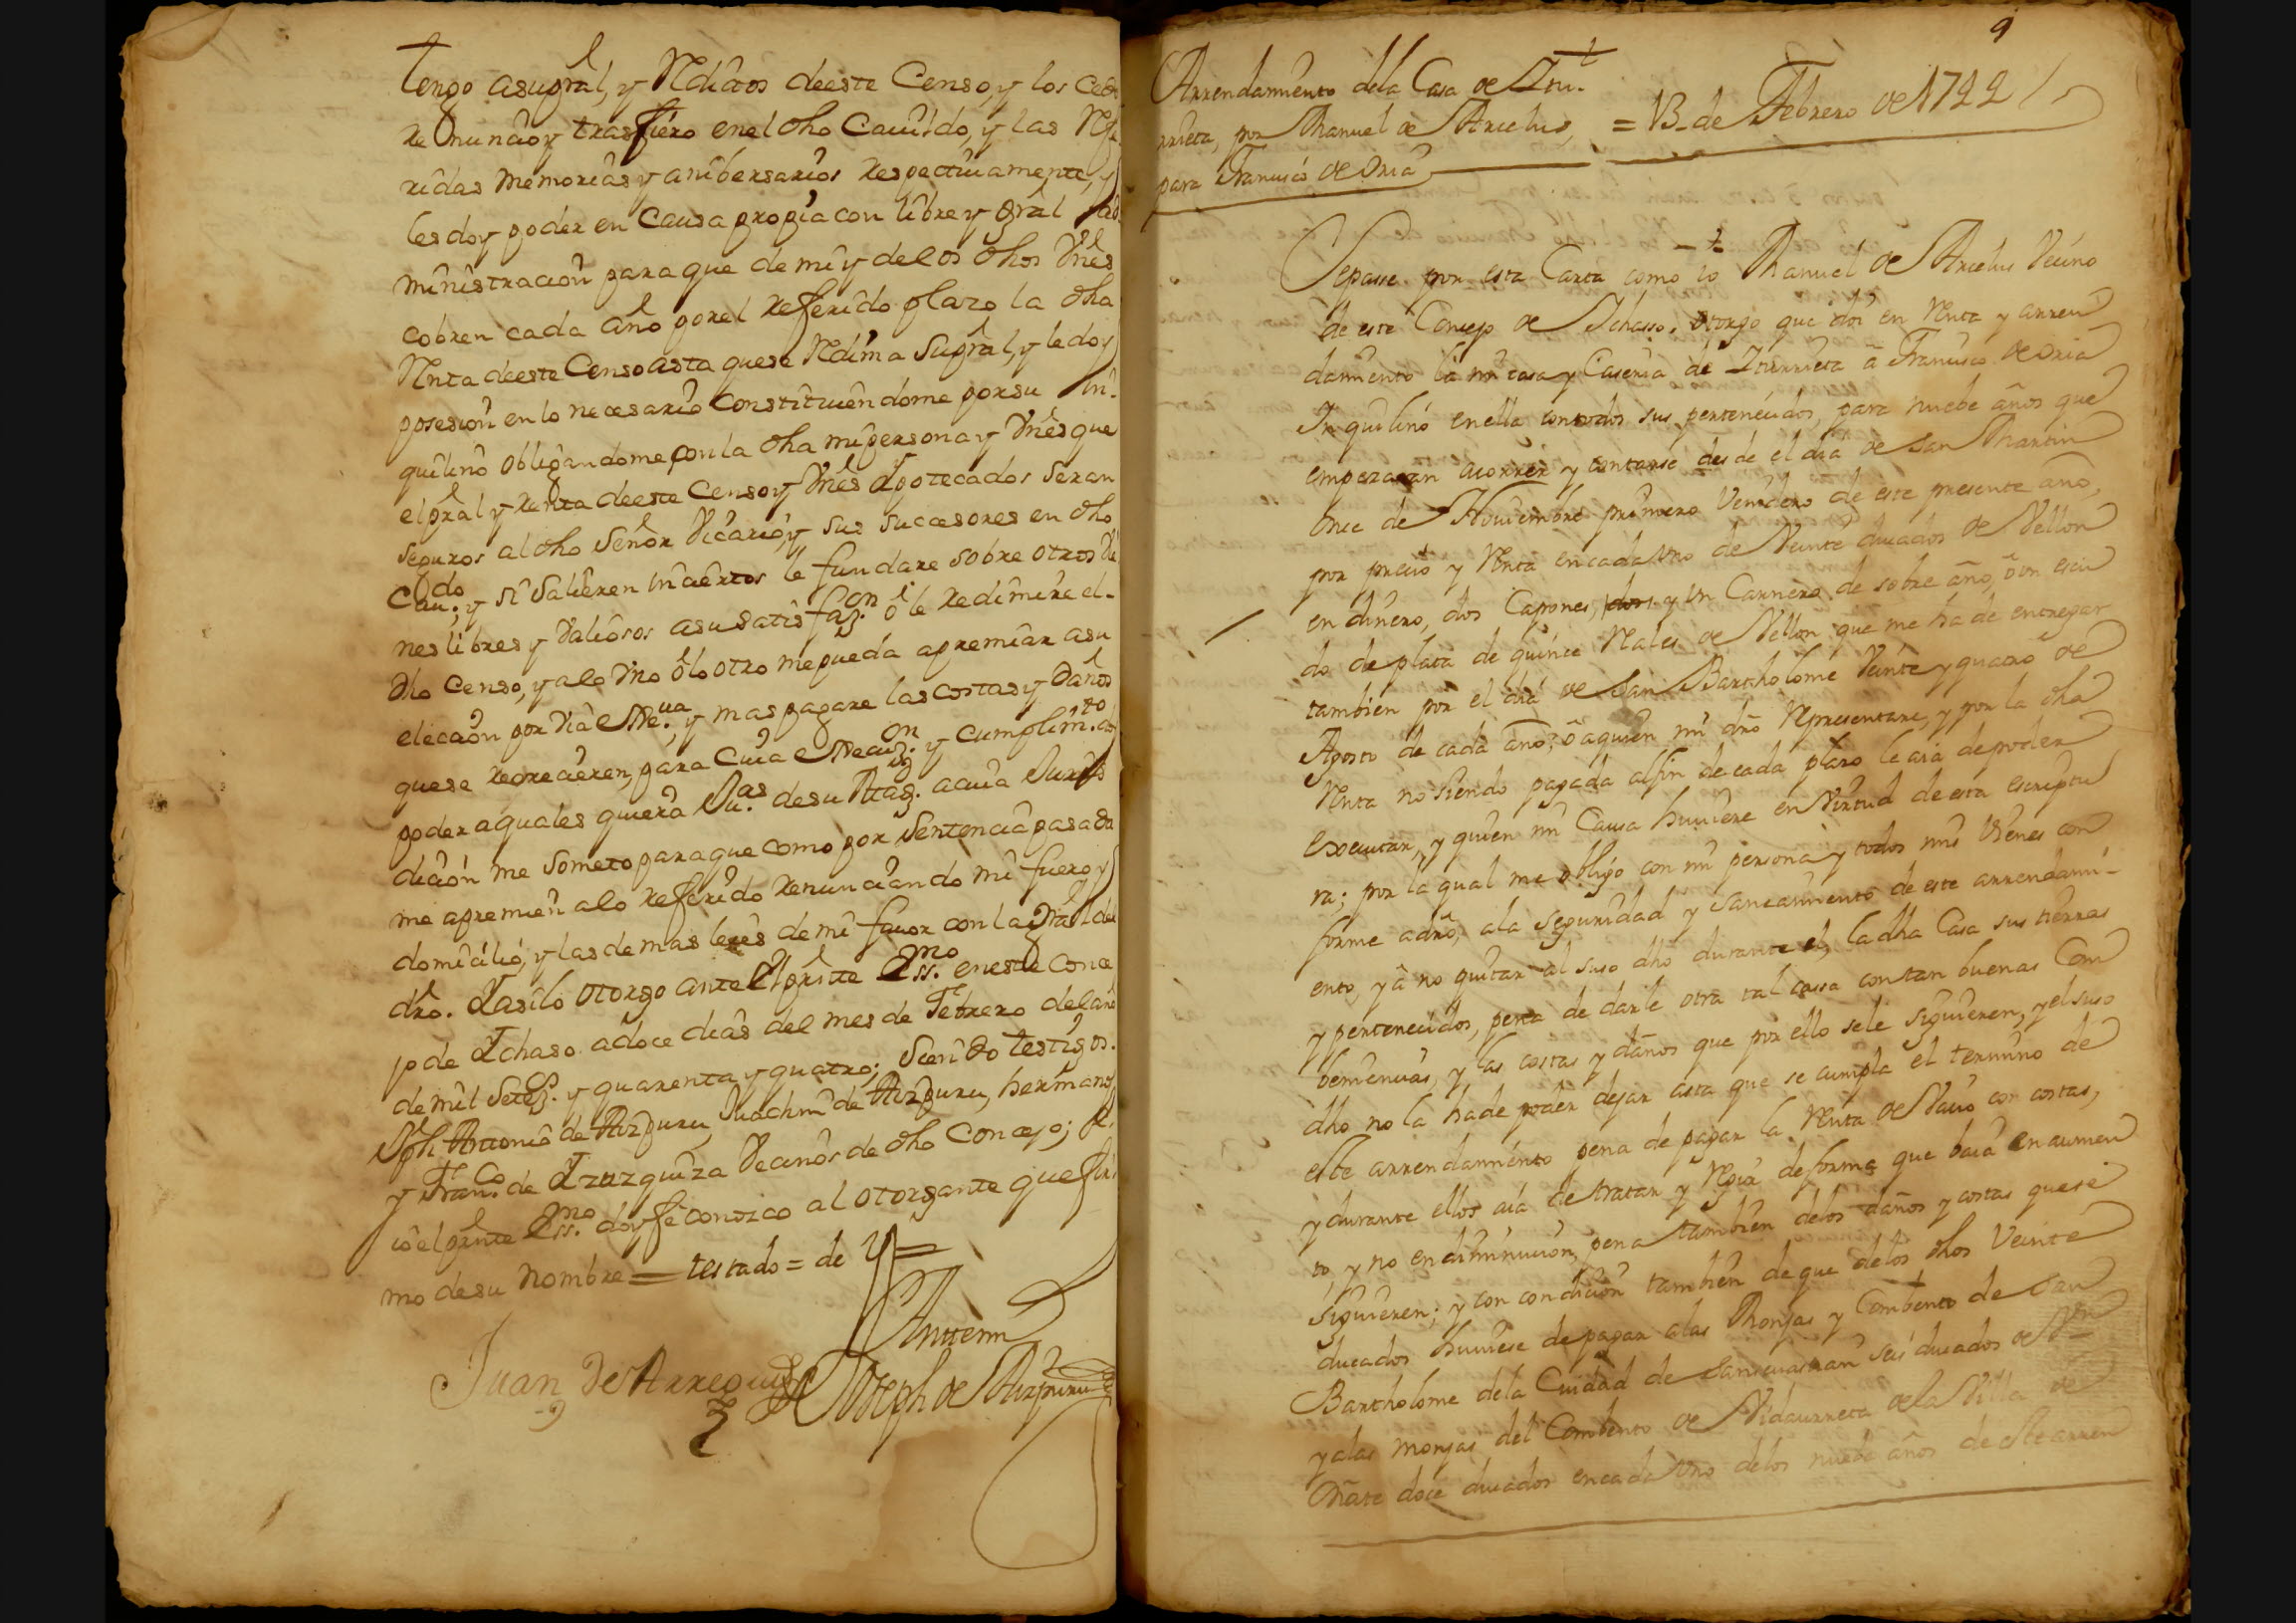 tengo asupral, y Rditos deeste Censo, y los cedo
renuncio y trasfiero enel dho Cauildo, y las Refe
ridas memorias y anibersarios respectiuamente, y
les doy poder en Causa propia con libre y gral ad
ministracion para que de mi y delos dhos Vnes
cobren cada año porel referido plazo la dha
Rnta deeste Censo asta quese Rdima supral, y le doy
posesion en lo necesario Constituiendome por su in
quilino obligandome con la dha mi persona y Vnes que
elpral y renta deeste Censo y Vnes Ipotecados seran
seguros al dho señor Vicario, y sus succesores en dho
Cauido. y si salieren inciertos le fundare sobre otros Vie
nes libres y Valiosos asu satisfazon. o le redimire el
dho Censo, y alo Vno o lo otro mepueda apremiar asu
eleccion por Via exeua. y mas pagare las costas y daños
quese recrecieren, para Cuia execuzon. y cumplimto. doy
poder aquales quiera Juas. desu Magd. acuia Juris
dicion me someto para que como por Sentencia pasada
me apremien alo referido renunciando mi fuero y
domicilio, y las demas leyes de mi fauor con la gral del
dro. I asilo otorgo ante el prste essmo. eneste Conce
jo de Ichaso adoce dias del mes de Febrero delaño
de mil Setez. y quarenta y quatro; siendo testigos.
Jph Antonio de Aizpuru, Juachin de Aizpuru, hermanos
y Franco. de Izuzquiza Vecinos de dho Concejo; e
io elprste essmo. doy fe conozco al otorgante que fir
mo desu nombre = testado = de y =
Antemi
Juan de Arregui
Joseph de Aizpuru
9
Arrendamiento dela Casa de Itu
rrieta, por Manuel de Arcelus,
para Francisco de Oria
= 13 de Febrero de 1744
Sepasse por esta Carta como io Manuel de Arcelus Vecino
de este Concejo de Ichasso, otorgo que doi en Renta y arren
damiento la mi casa y Caseria de Iturrieta a Francisco de Oria
Inquilino enella contodos sus pertenecidos, para nuebe años que
empezaran acorrer y contarse desde el dia de san Martin
once de Nouiembre primero Venidero de este presente año,
por precio y Renta encada Vno de Veinte ducados de Vellon
en dinero, dos Capones, y Vn Carnero de sobre año, o un escu
do de plata de quince Rales de Vellon que me ha de entregar
tambien por el dia de San Bartholome Veinte y quatro de
Agosto de cada año, o aquien mi dro Representare, y por la dha
Renta no siendo pagada alfin de cada plazo le aia depoder
executar, y quien mi Causa huuiere en Virtud de esta escriptu
ra; por la qual me obligo con mi persona y todos mis Vienes con
forme adro, ala seguridad y saneamiento de este arrendami-
ento, y a no quitar al suso dho durante el, la dha Casa sus tierras
y pertenecidos, pena de darle otra tal cassa contan buenas Com
beniencias, y las costas y daños que por ello sele siguieren, y el suso
dho no la hade poder dejar asta que se cumpla el termino de
este arrendamiento pena de pagar la Renta de Vacio con costas,
y durante ellos aia de tratar y Regir de forma que baia en aumen
to, y no en diminucion, pena tambien delos daños y costas quese
siguieren; y con condicion tambien de que delos dhos Veinte
ducados huuiese de pagar alas Monjas y Combento de San
Bartholome dela Ciudad de Sanseuastian seis ducados de Vn
y alas monjas del Combento de Vidaurreta dela Villa de
Oñate doce ducados encada Vno delos nuebe años de este arren